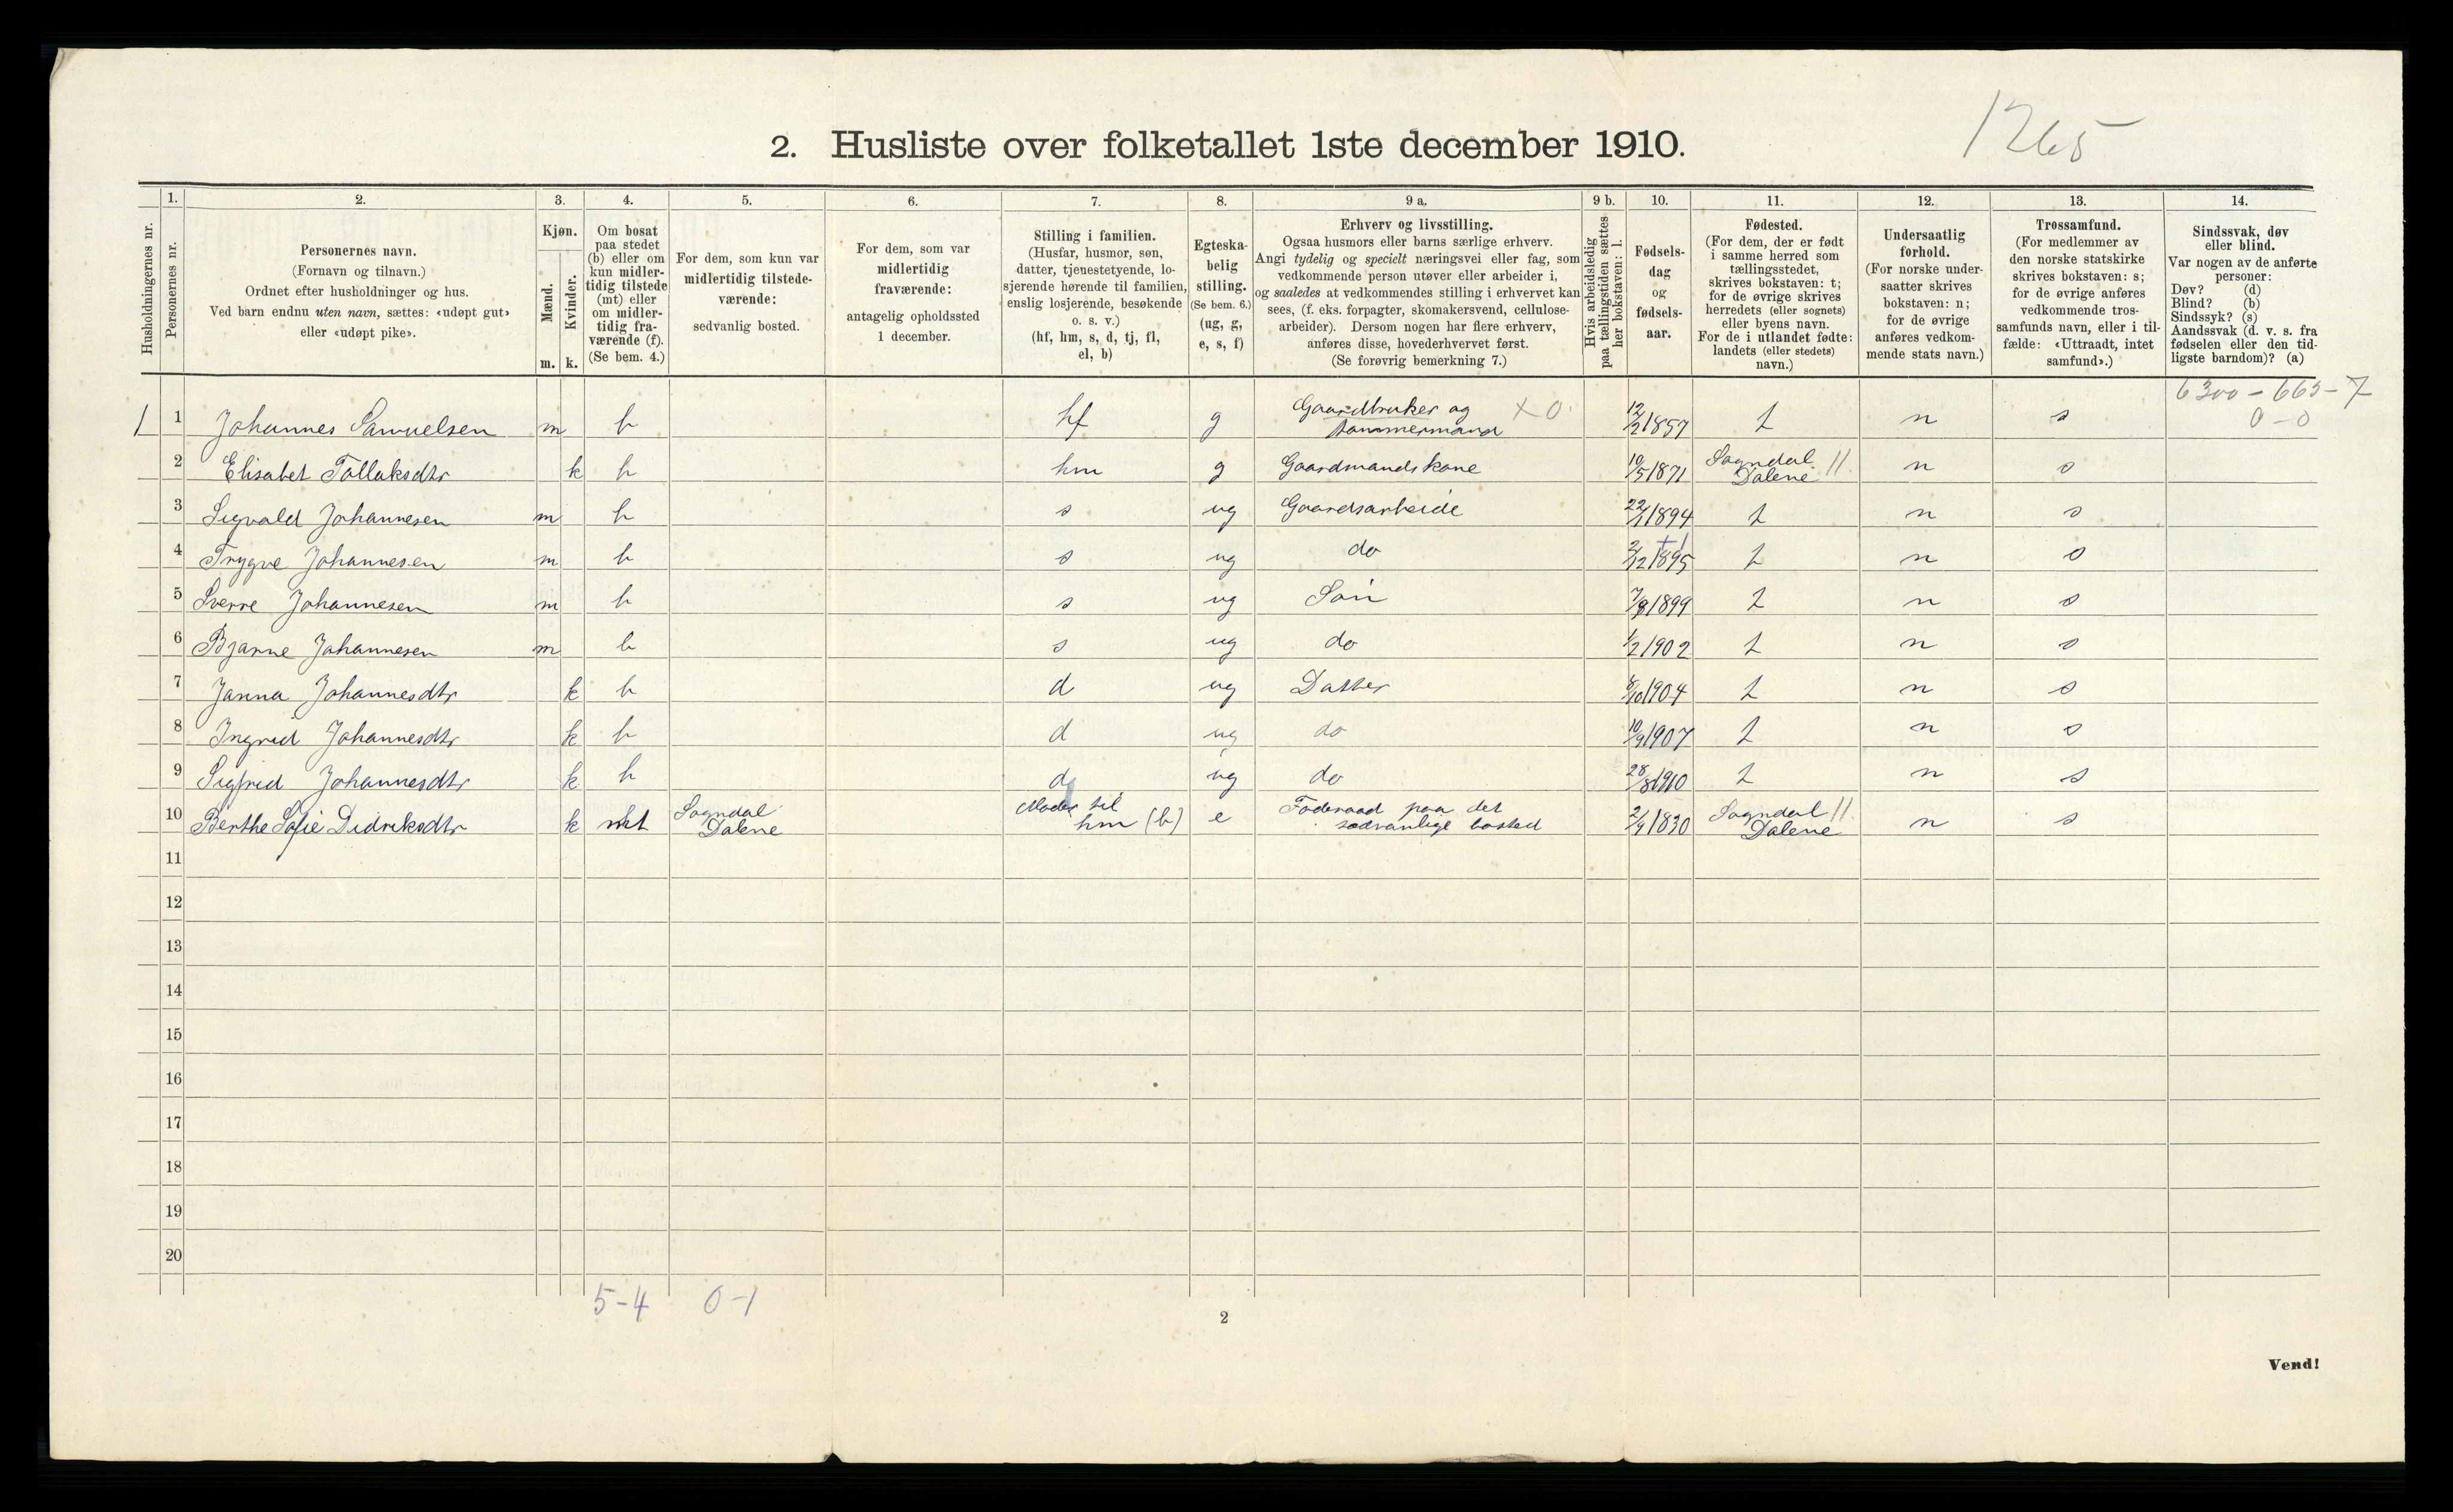 1265
2. Husliste over folketallet 1ste december 1910.
Husholdningernes nr.
1.
Personernes nr.
2.
Personernes navn.
(Fornavn og tilnavn.)
Ordnet efter husholdninger og hus.
Ved barn endnu uten navn, sættes: «udøpt gut»
eller «udøpt pike».
3.
Kjøn.
Mænd.
m.
Kvinder.
k.
4.
Om bosat
paa stedet
(b) eller om
kun midler-
tidig tilstede
(mt) eller
om midler-
tidig fra-
værende (f).
(Se bem. 4.)
5.
For dem, som kun var
midlertidig tilstede-
værende:
sedvanlig bosted.
6.
For dem, som var
midlertidig
fraværende:
antagelig opholdssted
1 december.
7.
Stilling i familien.
(Husfar, husmor, søn,
datter, tjenestetyende, lo-
sjerende hørende til familien,
enslig losjerende, besøkende
o. s. v.)
(hf, hm, s, d, tj, fl,
el, b)
8.
Egteska-
belig
stilling.
(Se bem. 6.)
(ug, g,
e, s, f)
9 a.
Erhverv og livsstilling.
Ogsaa husmors eller barns særlige erhverv.
Angi tydelig og specielt næringsvei eller fag, som
vedkommende person utøver eller arbeider i,
og saaledes at vedkommendes stilling i erhvervet kan
sees, (f. eks. forpagter, skomakersvend, cellulose-
arbeider). Dersom nogen har flere erhverv,
anføres disse, hovederhvervet først.
(Se forøvrig bemerkning 7.)
9 b.
Hvis arbeidsledig
paa tællingstiden sættes
her bokstaven: l.
10.
Fødsels-
dag
og
fødsels-
aar.
11.
Fødested.
(For dem, der er født
i samme herred som
tællingsstedet,
skrives bokstaven: t;
for de øvrige skrives
herredets (eller sognets)
eller byens navn.
For de i utlandet fødte:
landets (eller stedets)
navn.)
12.
Undersaatlig
forhold.
(For norske under-
saatter skrives
bokstaven: n;
for de øvrige
anføres vedkom-
mende stats navn.)
13.
Trossamfund.
(For medlemmer av
den norske statskirke
skrives bokstaven: s;
for de øvrige anføres
vedkommende tros-
samfunds navn, eller i til-
fælde: «Uttraadt, intet
samfund».)
14.
Sindssvak, døv
eller blind.
Var nogen av de anførte
personer:
Døv? (d)
Blind? (b)
Sindssyk? (s)
Aandssvak (d. v. s. fra
fødselen eller den tid-
ligste barndom)? (a)
6300 - 663 - 7
0 - 0
1 1 Johannes Samuelsen m b hf g Gaardbruker og tømmermand X 0 12/2 1857 t n s
2 Elisabet Tollaksdtr k b hm g Gaardmandskone 10/5 1871 Sogndal Dalene 11. n s
3 Sigvald Johannesen m b s ug Gaardsarbeide 22/1 1894 t n s
4 Trygve Johannesen m b s ug do 2/12 1895 t n s
5 Sverre Johannesen m b s ug Søn 7/8 1899 t n s
6 Bjarne Johannesen m b s ug do 1/2 1902 t n s
7 Janna Johannesdtr k b d ug Datter 8/10 1904 t n s
8 Ingrid Johannesdtr k b d ug do 10/9 1907 t n s
9 Sigfrid Johannesdtr k b d ug do 28/8 1910 t n s
10 Berthe Sofie Didriksdtr k mt Sogndal Dalene Moder til hm (b) e Føderaad paa det sædvanlige bosted 2/9 1830 Sogndal Dalene 11. n s
11
12
13
14
15
16
17
18
19
20
5-4 0-1
2
Vend!